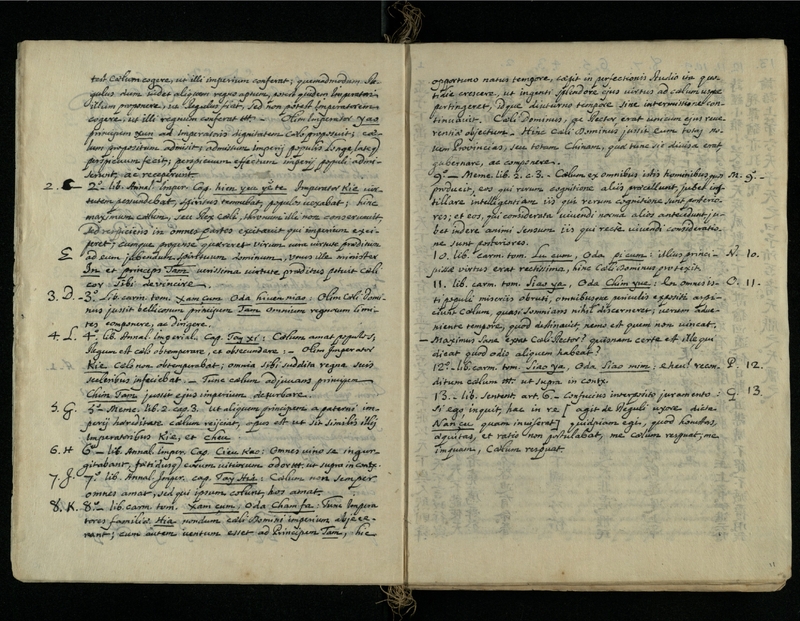 test Cœlum cogere, ut illi imperium conferat; quemadmodum Re-
gulus dum videt aliquem regno aptum, potest quidem Imperatori
illum proponere, ut Regulus fiat, sed non potest Imperatorem
cogere, ut illi regnum conferat etc. – Olim Imperator Yao
principem Xun ad Imperatoris dignitatem Cœlo proposuit; cœ-
lum propositum admisit; admissum Imperij populis longe lateq
perspicuum fecit; perspicuum effectum imperij populi admi-
serunt, ac receperunt.
2. 2º lib. Annal. Imper. Cap. hien yeu ye te Imperator Kie vir-
tutem pessundabat, spiritus temnebat, populos vexabat; hinc
maximum cœlum, seu Rex cœli, thronum ille non conservavit,
sed respiciens in omnes partes excitavit qui imperium exci-
peret; cumque propense quæreret virum vera virtute præditum
E ad eum jubendum spirituum dominum, unus ille minister
In et princeps Tam verissima virtute præditus potuit cœli
cor sibi devincire.
3. D. – 3º lib. carm. tom. Xam cum Oda hiuen niao: Olim Cœli Domi-
nus jussit bellicosum principem Tam Omnium regnorum limi-
tes componere, ac dirigere.
4. L. 4º lib. Annal. Imperial. Cap. Tay xi: Cœlum amat populos,
Regum est cœli obtemperare, et obsecundare: – Olim Imperator
Kie Cœli non obtemperabat; omnia sibi subdita regna suis
sceleribus inficiebat. – Tunc cœlum adjuvans principem
Chim Tam jussit ejus imperium deturbare.
5. G. 5º Meme. lib. 2. cap. 3. Ut aliquem principem a paterni im-
perij hæreditate cœlum rejiciat, opus est ut sit similis illis
Imperatoribus Kie, et Cheu
6. H 6º – lib. Annal. Imper. Cap. Cieu Kao: Omnes vino se ingur-
gitabant, fœtidusq eorum vitiorum odor etc. ut supra in contx.
7. J. 7º lib. Annal. Imper. cap. Tay Kia: Cœlum non semper
omnes amat, sed qui ipsum colunt, hos amat.
8. K. 8º – lib. carm. tom. Xam cum: Oda Cham fa: Tunc Impera
tores familiæ Hia nondum cœli Domini imperium abjece-
rant; cum autem ventum esset ad Principem Tam, hic
opportuno natus tempore, cœpit in perfectionis studio ita quo-
tidie crescere, ut ingens splendore ejus virtus ad cœlum usque
pertingeret, idque diuturno tempore sine intermissione con-
tinuavit. Cœli Dominus, ac Rector erat unicum ejus reve-
rentiæ objectum. – Hinc Cœli Dominus jussit eum totas no-
vem Provincias, seu totam Chinam, quæ tunc sic divisa erat,
gubernare, ac componere.
9º – Meme. lib. 2. c. 3. – Cœlum ex omnibus istis hominibus quos M. 9. –
producit, eos qui rerum cognitione aliis præcellunt, jubet ins-
tillare intelligentiam iis qui rerum cognitione sunt posterio-
res; et eos, qui considerata vivendi norma alios antecedunt, ju-
bet indere animi sensum iis qui recte vivendi consideratio-
ne sunt posteriores.
10. lib. carm. tom. Lu cum, Oda pi cum: illius princi- N. 10.
pissæ virtus erat rectissima, hinc Cœli Dominus protexit.
11. lib. carm. tom. Siao ya, Oda Chim yue: En omnes is- O. 11.
ti populi miseriis obruti, omnibusque periculis expositi aspi-
ciunt cœlum, quasi somnians nihil discerneret; verum adve-
niente tempore, quod destinavit, nemo est quem non vincat.
– Maximus sane extat Cœli Rector? quisnam certe est ille qui
dicat quod odio aliquem habeat?
12º. – lib. carm. tom. Siao ya, Oda Siao mim: eheu! recon- P. 12.
ditum cœlum etc. ut supra in contx.
13. – lib. sentent. art. 6. – Confucius interposito juramento: Q. 13
si ego inquit, hac in re [agit de Reguli uxore dicta
Nan çu quam inviserat] quidpiam egi, quod honestas,
æquitas, et ratio non postulabat, me cœlum respuat, me
inquam, Cœlum respuat.
11